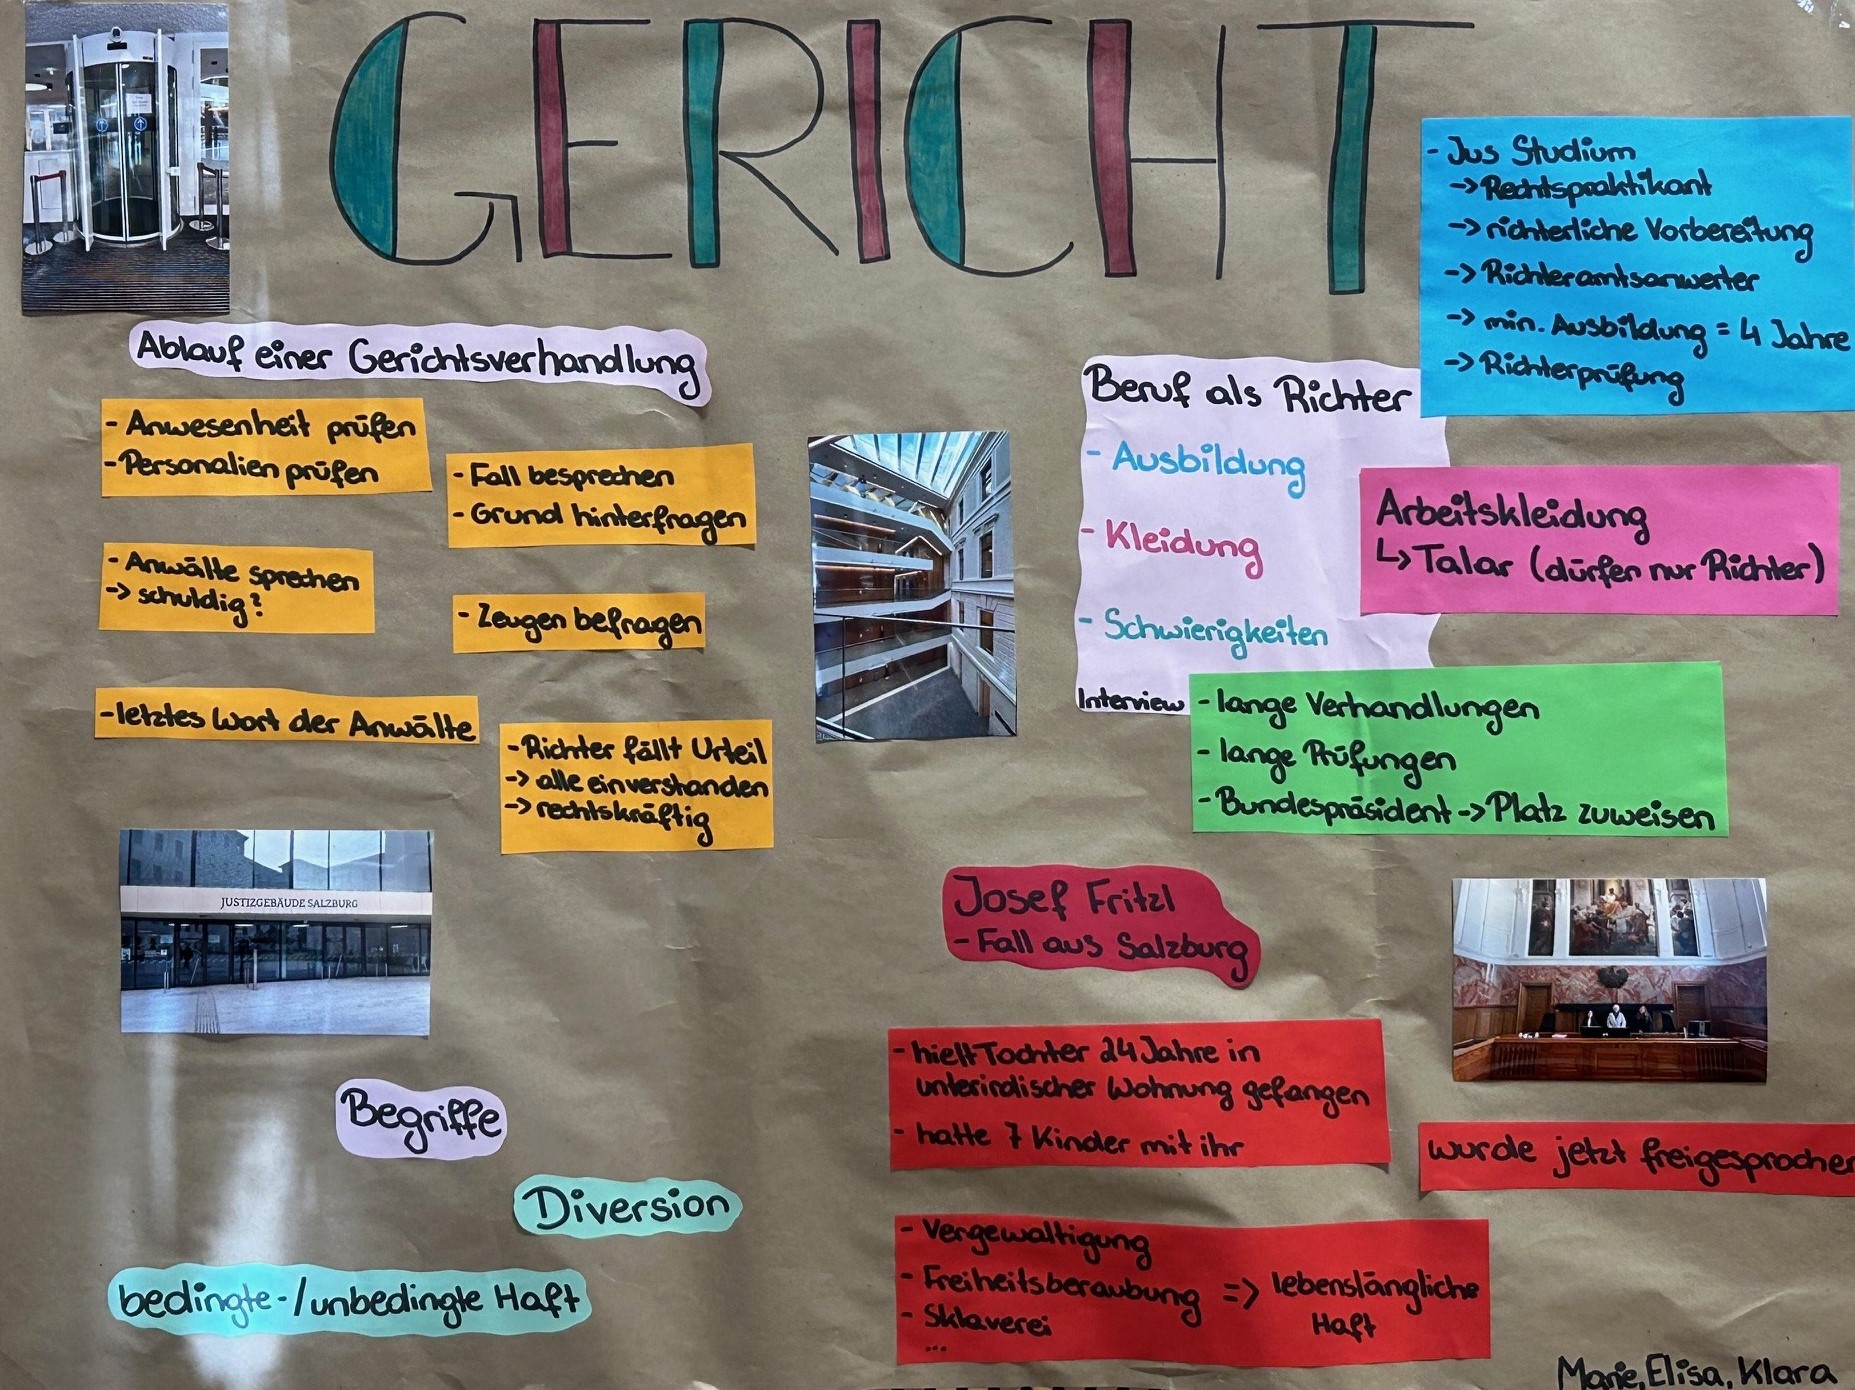 GERICHT
- Jus Studium
-> Rechtspraktikant
-> richterliche Vorbereitung
-> Richteramtsanwerter
-> min. Ausbildung = 4 Jahre
-> Richterprüfung
Ablauf einer Gerichtsverhandlung
- Anwesenheit prüfen
- Personalien prüfen
- Fall besprechen
- Grund hinterfragen
- Anwälte sprechen
-> schuldig?
- Zeugen befragen
- letztes Wort der Anwälte
- Richter fällt Urteil
-> alle einverstanden
-> rechtskräftig
Beruf als Richter
- Ausbildung
- Kleidung
- Schwierigkeiten
Interview
Arbeitskleidung
↳ Talar (dürfen nur Richter)
- lange Verhandlungen
- lange Prüfungen
- Bundespräsident -> Platz zuweisen
JUSTIZGEBÄUDE SALZBURG
Josef Fritzl
- Fall aus Salzburg
- hielt Tochter 24 Jahre in
unterirdischer Wohnung gefangen
- hatte 7 Kinder mit ihr
wurde jetzt freigesprochen
- Vergewaltigung
- Freiheitsberaubung => lebenslängliche
Haft
- Sklaverei
...
Begriffe
Diversion
bedingte-/unbedingte Haft
Marie, Elisa, Klara